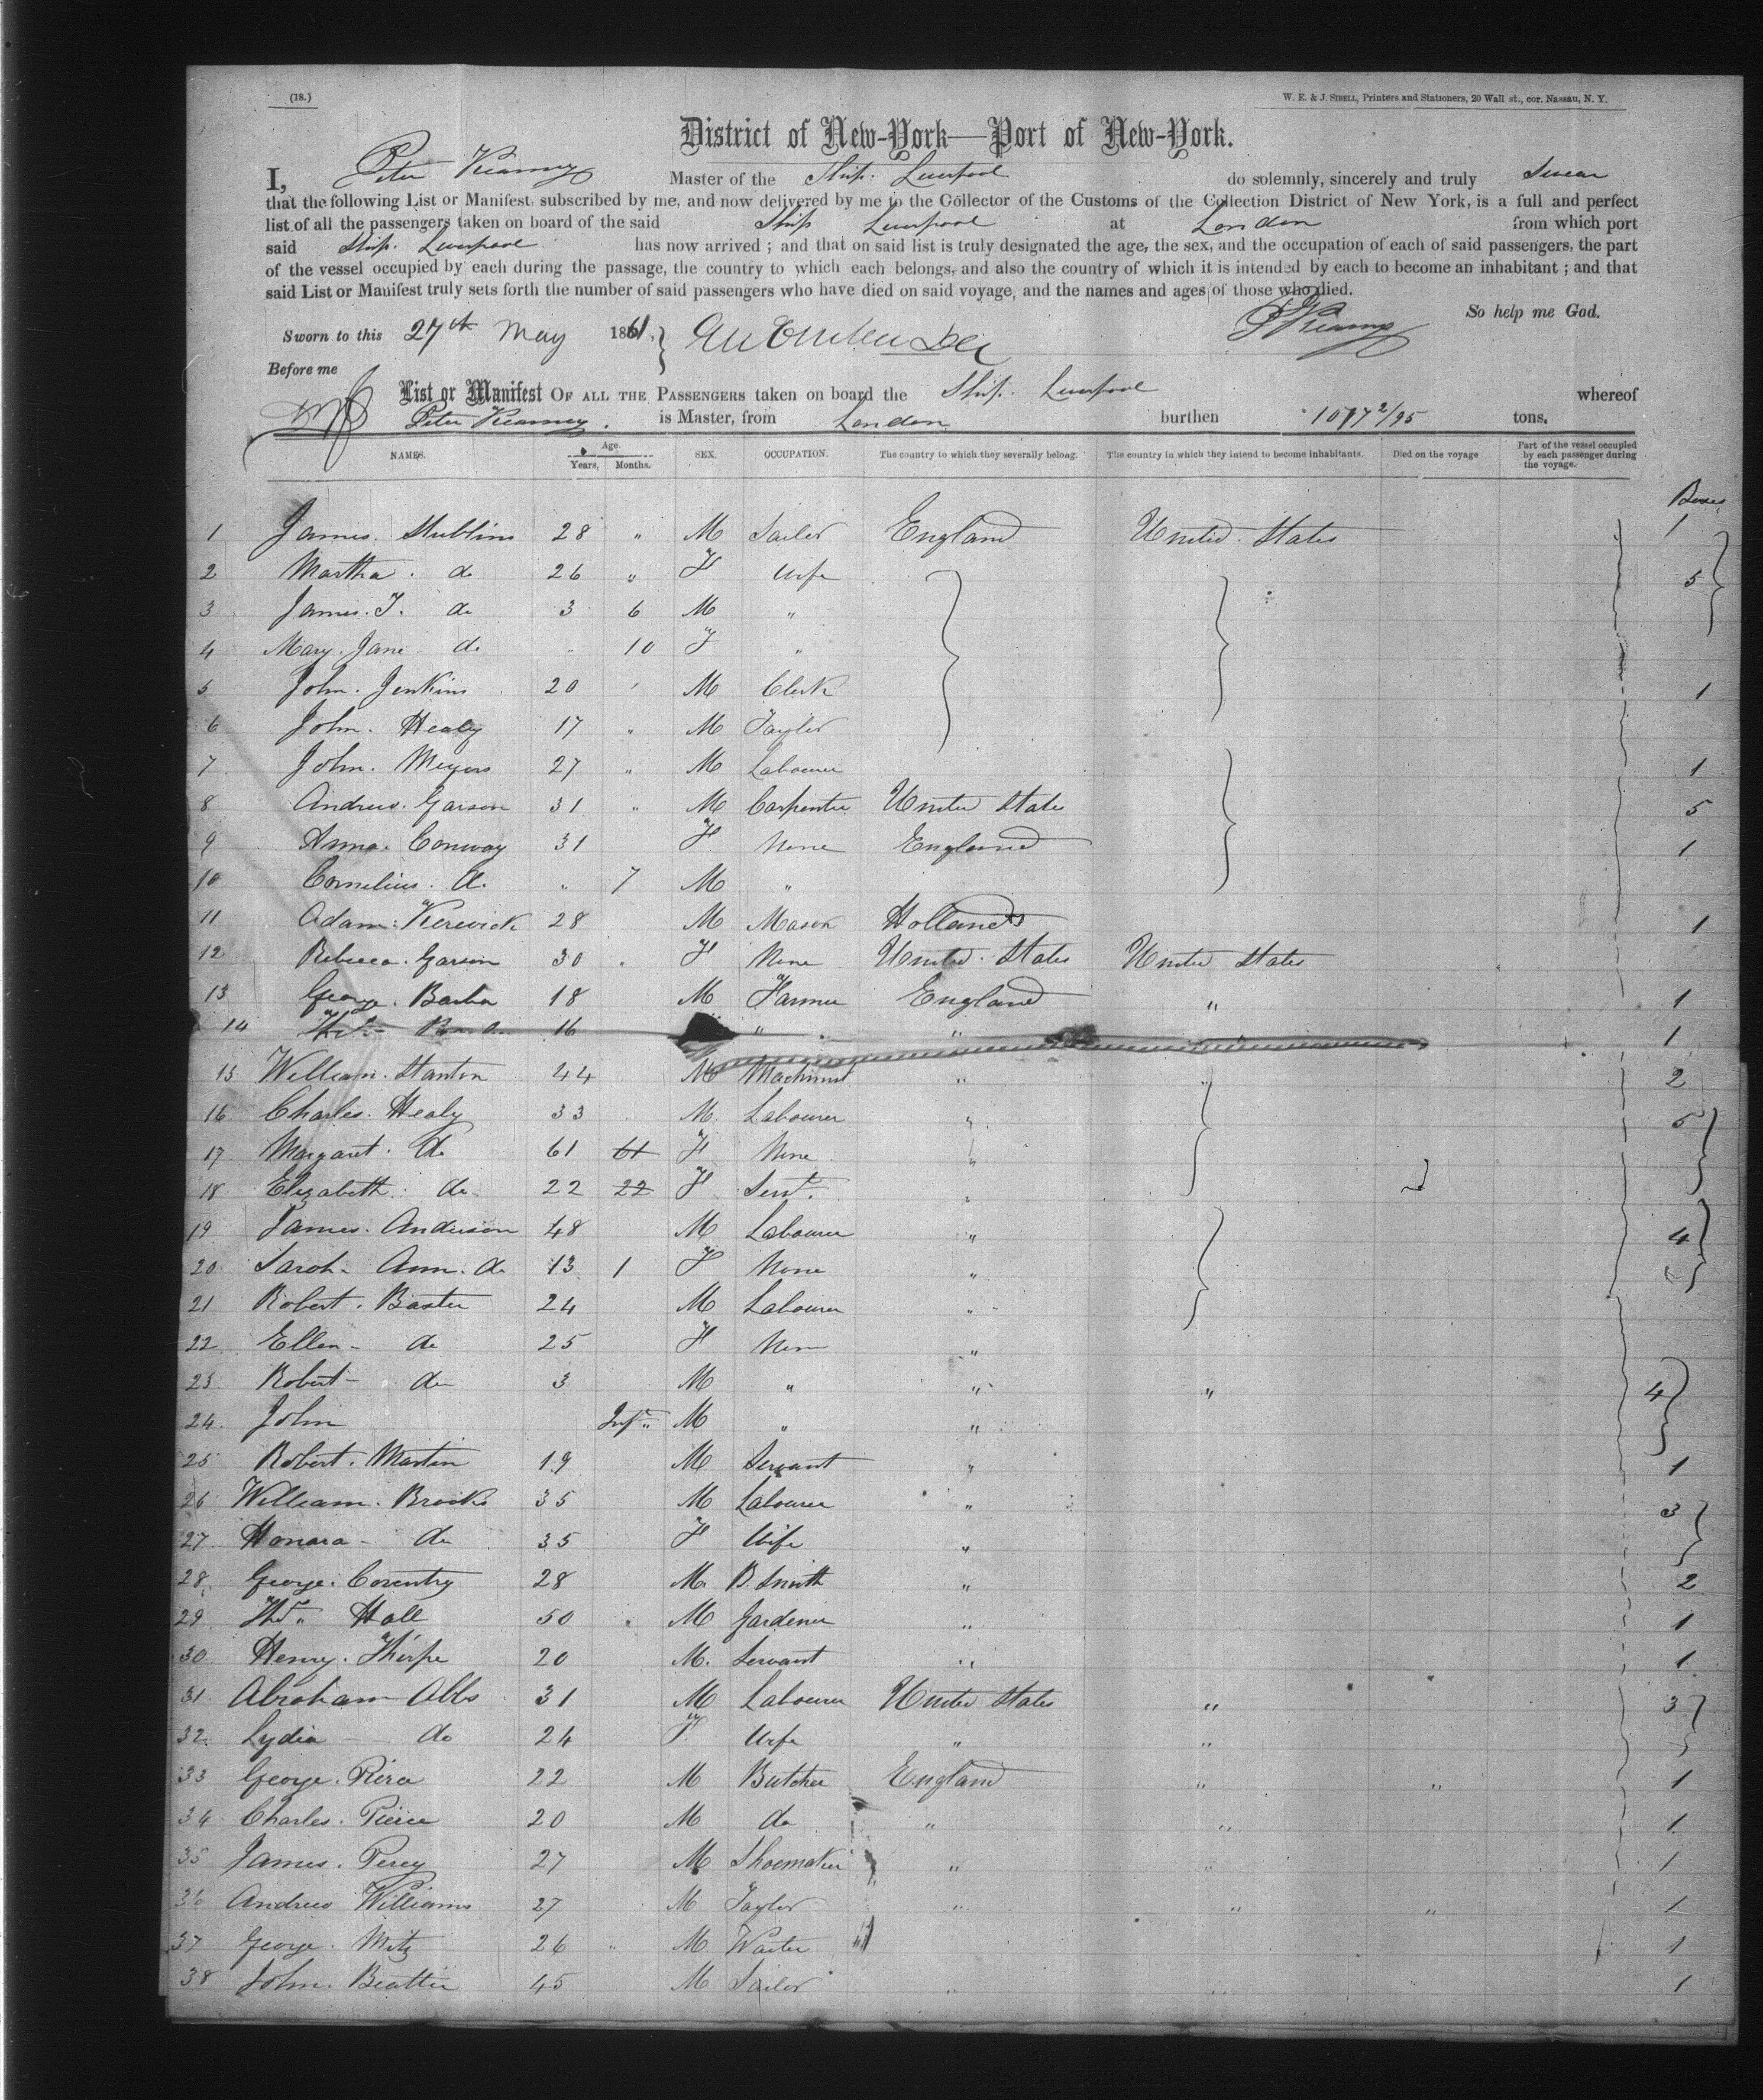 (18.)
W. E. & J. SIBELL, Printers and Stationers, 20 Wall st., cor. Nassau, N. Y.
District of New-York—Port of New-York.
I, Peter Kearney Master of the Ship. Liverpool do solemnly, sincerely and truly Swear
that the following List or Manifest, subscribed by me, and now delivered by me to the Collector of the Customs of the Collection District of New York, is a full and perfect
list of all the passengers taken on board of the said Ship Liverpool at London from which port
said Ship. Liverpool has now arrived ; and that on said list is truly designated the age, the sex, and the occupation of each of said passengers, the part
of the vessel occupied by each during the passage, the country to which each belongs, and also the country of which it is intended by each to become an inhabitant ; and that
said List or Manifest truly sets forth the number of said passengers who have died on said voyage, and the names and ages of those who died.
So help me God.
Sworn to this 27th May 1861. P Kearney
Before me
List or Manifest OF ALL THE PASSENGERS taken on board the Ship. Liverpool whereof
Peter Kearney. is Master, from London burthen 1077 2/95 tons.
NAMES. Age. Years, Months. SEX. OCCUPATION. The country to which they severally belong. The country in which they intend to become inhabitants. Died on the voyage Part of the vessel occupied by each passenger during the voyage.
Boxes
1 James. Stubbins 28 " M Sailor England United States 1
2 Martha. do 26 " F Wife 5
3 James. T. do 3 6 M "
4 Mary. Jane do " 10 F "
5 John. Jenkins 20 " M Clerk 1
6 John. Healy 17 " M Taylor
7 John. Meyers 27 " M Labourer 1
8 Andrew. Garson 31 " M Carpenter United States 5
9 Anna. Conway 31 F None England 1
10 Cornelius. do " 7 M "
11 Adam. 28 M Mason Holland 1
12 Rebecca. Garson 30 F None United States United States
13 George. Barber 18 M Farmer England " 1
14 Thos 16 " " 1
15 William. Stanton 44 M Machinist " " 2
16 Charles. Healy 33 M Labourer " 5
17 Margaret. do 61 61 F None "
18 Elizabeth. do 22 22 F Servt. "
19 James. Anderson 48 M Labourer " 4
20 Sarah. Ann. do 13 1 F None "
21 Robert. Baxter 24 M Labourer "
22 Ellen - do 25 F None "
23 Robert - do 3 M " " " 4
24 John Inft M " "
25 Robert. Martin 19 M Servant " 1
26 William. Brooks 35 M Labourer " 3
27 Honara - do 35 F Wife "
28 George. Coventry 28 M. B. Smith " 2
29 Thos Hall 50 M Gardener " 1
30 Henry. Thorpe 20 M. Servant " 1
31 Abraham Abbs 31 M Labourer United States " 3
32 Lydia do 24 F Wife " "
33 George. 22 M Butcher England " " 1
34 Charles. Pierce 20 M do " " 1
35 James. Percy 27 M Shoemaker " " 1
36 Andrew Williams 27 M Taylor " " " 1
37 George. Metz 26 " M Waiter 1
38 John. Beattie 45 M Sailor " " 1